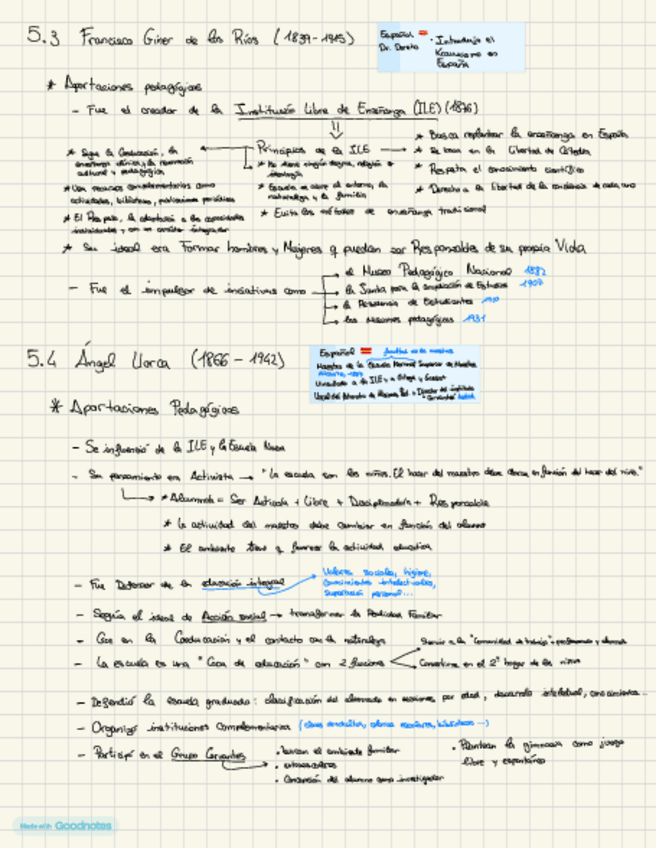 5.3 Francisco Giner de los Ríos (1839-1915)
Español =
Dr. Derecho
· Introdujo el
Krausismo en
España
* Aportaciones pedagógicas
- Fue el creador de la Institución Libre de Enseñanza (ILE) (1876)
Principios de la ILE
* Sigue la Coeducación, la
enseñanza cíclica, y la renovación
cultural y pedagógica
* Usa recursos complementarios como
actividades, bibliotecas, publicaciones periódicas
* El Respeto, la adaptación a las capacidades
individuales y con un carácter integrador
* No tiene ningún dogma, religión o
ideología
* Escuela se abre al entorno, la
naturaleza y la familia
* Evita los métodos de enseñanza tradicional
* Busca replantear la enseñanza en España
* Se basa en la Libertad de Cátedra
* Respeta el conocimiento científico
* Derecho a la libertad de la conciencia de cada uno
* Su ideal era Formar hombres y Mujeres q puedan ser Responsables de su propia Vida
- Fue el impulsor de iniciativas como
el Museo Pedagógico Nacional 1882
la Junta para la ampliación de Estudios 1907
la Residencia de Estudiantes 1910
las Misiones pedagógicas 1931
5.4 Ángel Llorca (1866 - 1942)
Español =
Maestro de la Escuela Normal Superior de Maestros
Vinculado a la ILE y a Ortega y Gasset
Director del instituto
"Cervantes"
* Aportaciones Pedagógicas
- Se influenció de la ILE y la Escuela Nueva
- Su pensamiento era Activista → "La escuela son los niños. El hacer del maestro debe darse en función del hacer del niño."
* Alumnado = Ser Activo/a + Libre + Disciplinado/a + Responsable
* La actividad del maestro debe cambiar en función del alumno
* El ambiente tiene q favorecer la actividad educativa
- Fue Defensor de la educación integral
Valores sociales, higiene,
conocimientos intelectuales,
superación personal...
- Seguía el ideal de Acción social → transformar la Realidad Familiar
- Cree en la Coeducación y el contacto con la naturaleza
- La escuela es una "Casa de educación" con 2 funciones
Servir a la "Comunidad de trabajo" = profesores y alumnos
Convertirse en el 2º hogar de los niños
- Defendió la escuela graduada: clasificación del alumnado en secciones por edad, desarrollo intelectual, conocimientos...
- Organizar instituciones complementarias
- Participó en el Grupo Cervantes
el ambiente familiar
· Concepción del alumno como investigador
· Plantean la gimnasia como juego
libre y espontáneo
Made with Goodnotes